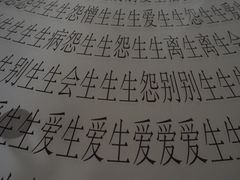 怨怨生怨憎生生爱生生怨生
生生生生病怨生怨生生离生离生会
生别生生会生生生怨别别生生
生生爱生爱生爱爱爱生生